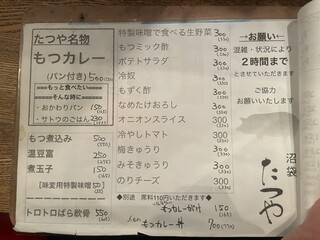 たつや名物
もつカレー
(パン付き) 500
====もっと食べたい====
====そんな時に====
・おかわりパン 150
・サトウのごはん 230
もつ煮込み 500
温豆富 250
煮玉子 150
[味変用特製味噌 50]
トロトロばら軟骨 550
特製味噌で食べる生野菜 300
もつミック酢 300
ポテトサラダ 300
冷奴 300
もずく酢 300
なめたけおろし 300
オニオンスライス 300
冷やしトマト 300
梅きゅうり 300
みそきゅうり 300
のりチーズ 300
◆別途 席料110円いただきます◆
もつカレーがけ 150
もつカレー丼 700
→お願い←
混雑・状況により
2時間まで
とさせていただきます
ご協力
お願いいたします
沼袋
たつや